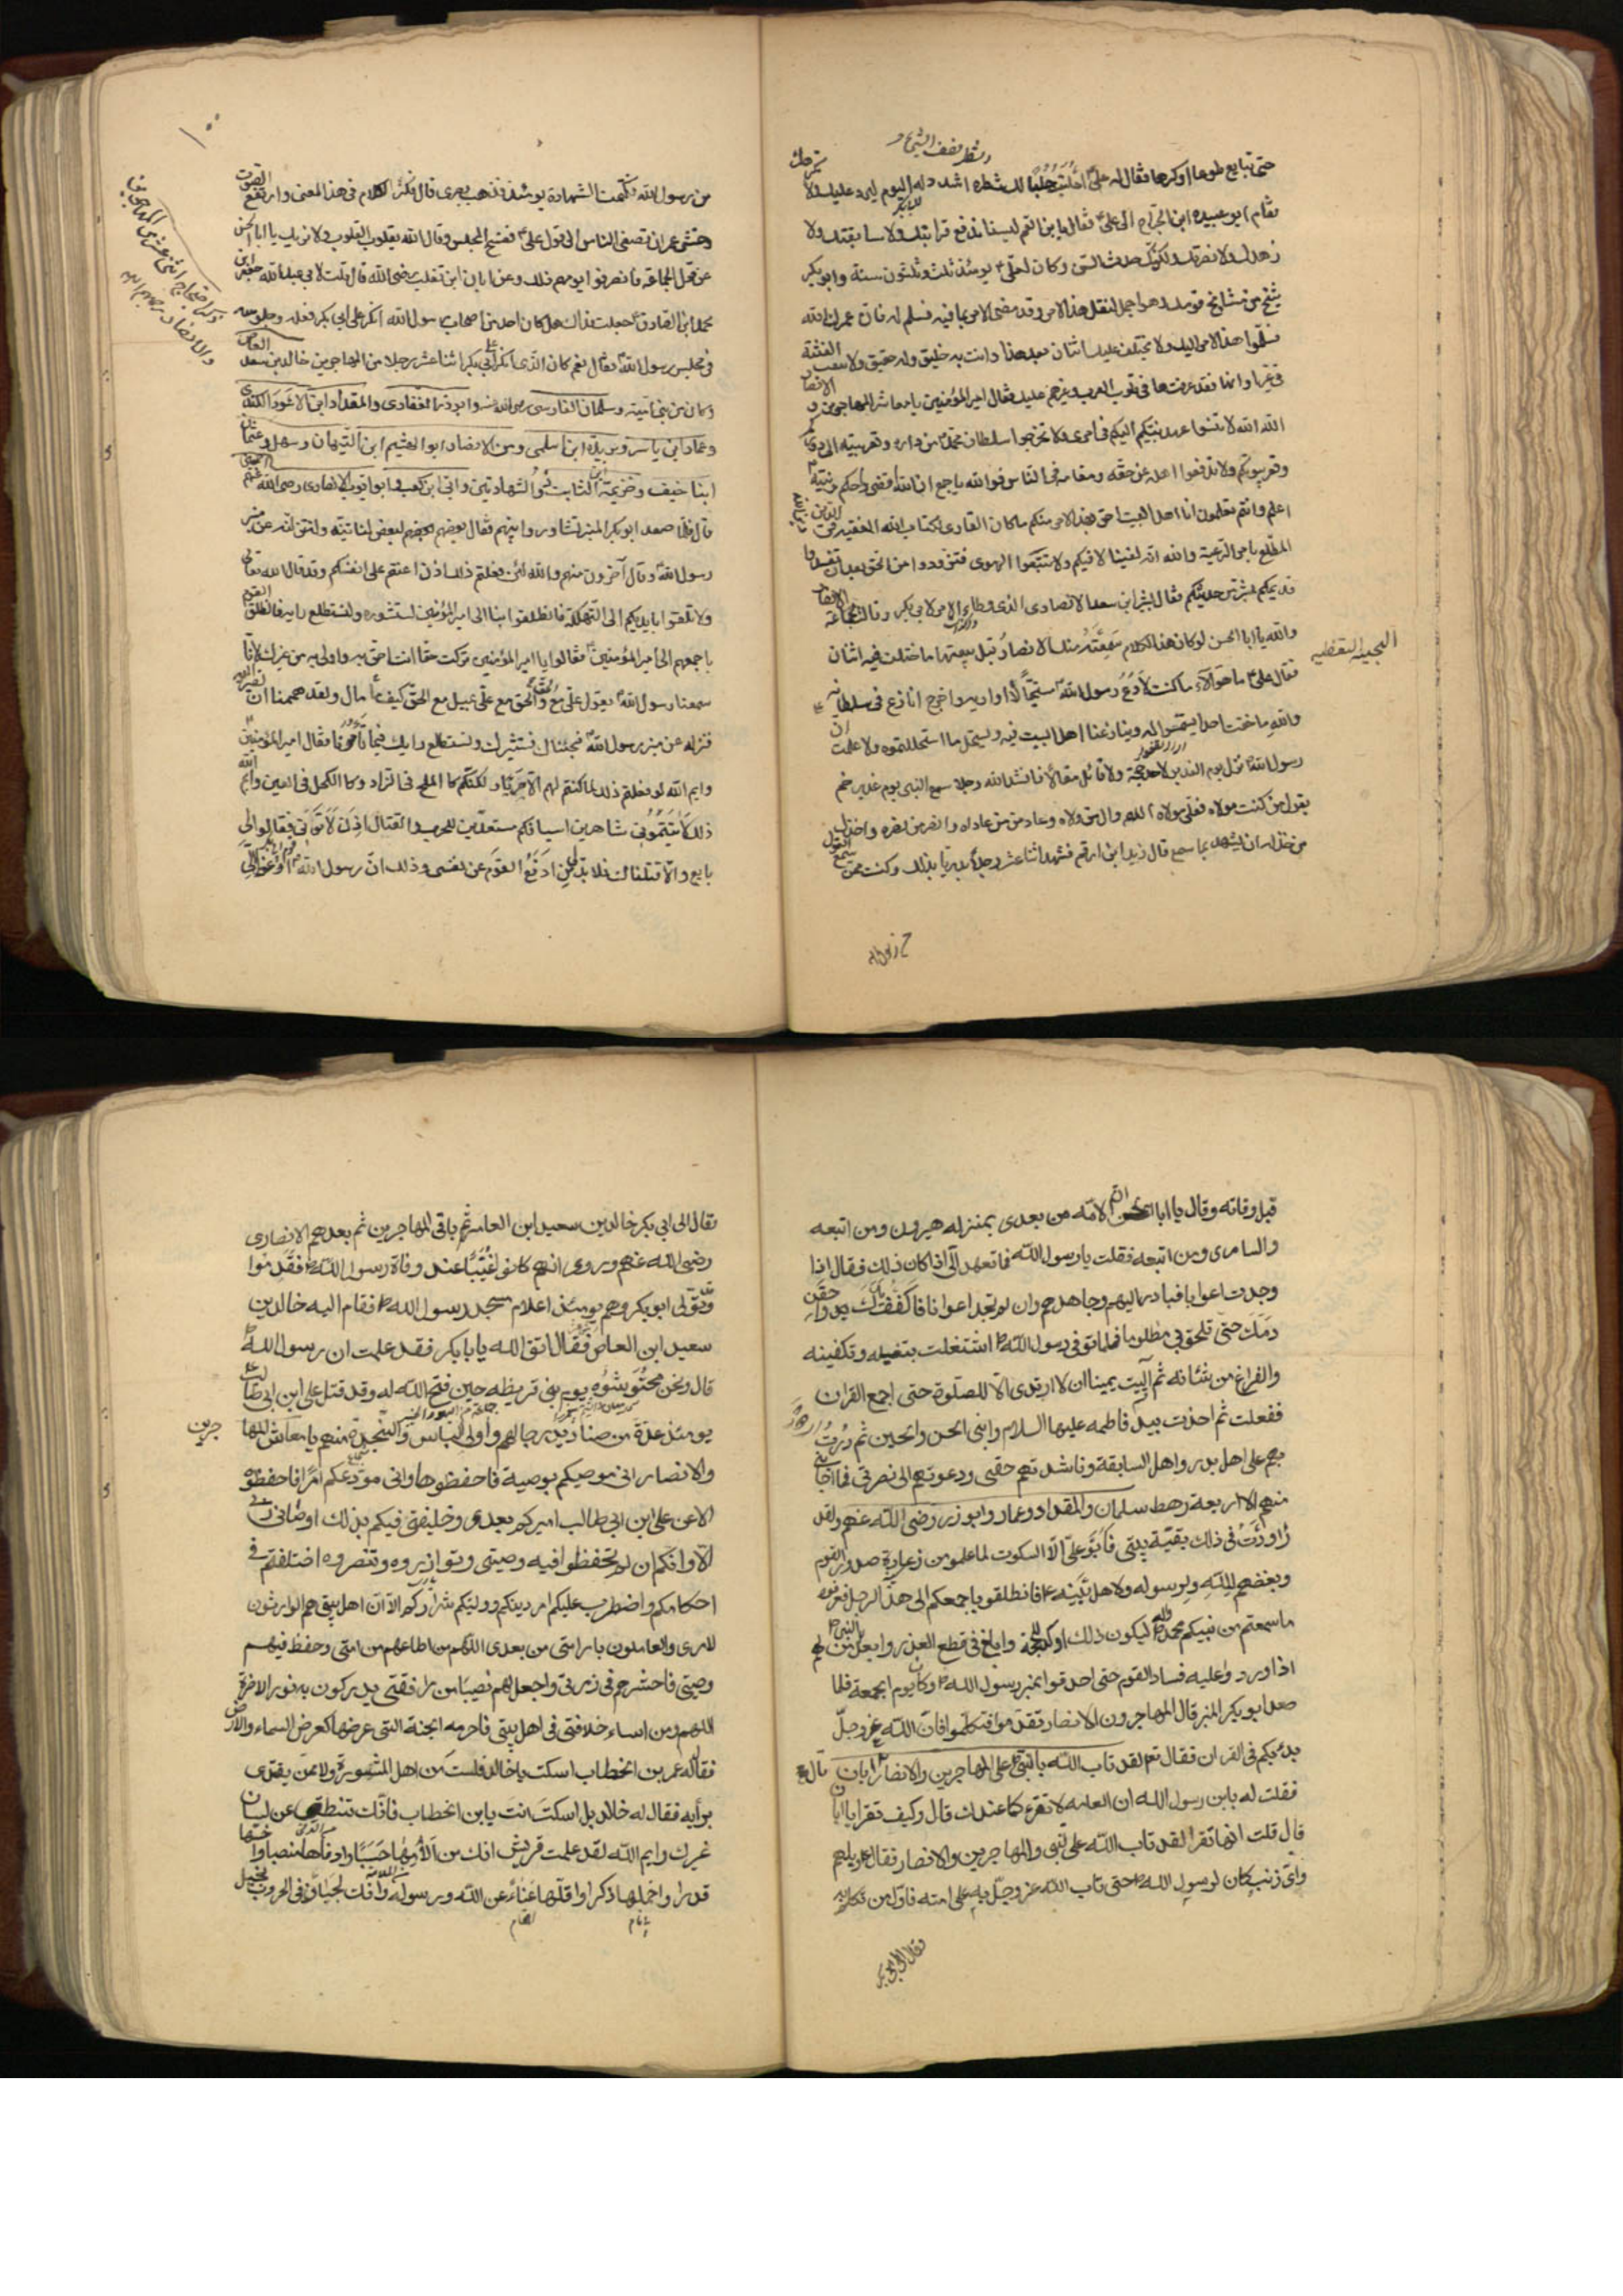 حتى تبايع طوعا اوكرها فقال له علىّ احلُب حَلَبًا لك شطره اشدد له اليوم ليرد عليك
فقام ابو عبيدة ابن الجرّاح الى علىّ فقال يا بن العم لسنا ندفع قرابتك ولا سابقتك ولا
ولا نصرتك ولكنك حدث السن وكان لعلىّ يومئذ ثلث وثلثون سنة وابو بكر
شيخ من مشايخ قومك وهو احمل لثقل هذا الامر وقد مضى الامر بما فيه فسلم له فان عمرك الله
يسلّموا هذا الامر اليك ولا يختلف عليك اثنان بعد هذا وانت به خليق وله حقيق ولا تبعث الفتنة
فقد عرفت ما فى قلوب العرب وغيرهم عليك فقال امير المؤمنين يا معاشر المهاجرين و الانصار
الله الله لا تنسوا عهد نبيّكم اليكم فى امرى ولا تخرجوا سلطان محمّد من داره وقعر بيته الى دوركم
وقعر بيوتكم ولا تدفعوا اهله عن حقه ومقامه فى الناس فوالله يا جمع ان الله قضى وحكم ونبيّه
اعلم وانتم تعلمون انا اهل البيت احق بهذا الامر منكم ما كان القارى لكتاب الله الفقيه فى دين الله
المطّلع بامر الرّعية والله انّه لفينا لا فيكم ولا تتبعوا الهوى فتزدادوا من الحق بعدا
قديمكم بشرّ من حديثكم فقال بشير ابن سعد الانصارى الذى وطاء الامر لابى بكر وقالت جماعة الانصار
والله يا ابا الحسن لو كان هذا الكلام سَمِعَتهُ منك الانصار قبل بيعتها ما اختلف فيه اثنان
فقال علىّ يا هؤلاء ما كنت لاَدَعُ رسول الله مسجّاً لا اواريه واخرج انازع فى سلطانه
والله ما خفت احدا يسمو له وينازعنا اهل البيت فيه ويستحل ما استحللتموه ولا علمت ان
رسول الله ترك يوم الغدير لاحد حجة ولا لقائل مقالاً فانشد الله رجلا سمع النبى يوم غدير خم
يقول من كنت مولاه فعلى مولاه اللهم وال من والاه وعاد من عاداه وانصر من نصره واخذل
من خذله ان يشهد بما سمع قال زيد ابن ارقم فشهد اثنا عشر رجلاً بدريّا بذلك وكنت ممّن سمع القول
من رسول الله فكتمت الشهادة يومئذ فذهب بصرى قال وكثر الكلام فى هذا المعنى وارتفع الصوت
وخشى عمر ان يصغى الناس الى قول علىّ ففسخ المجلس وقال الله يقلب القلوب ولا تزل يا ابا الحسن
عن قول الجماعة فانصرفوا يومهم ذلك وعن ابان ابن تغلب رضى الله قال قلت لابى عبد الله جعفر ابن
محمد ابن الصادق جعلت فداك هل كان احد من اصحاب رسول الله انكر على ابى بكر فعله وجلوسه
فى مجلس رسول الله فقال نعم كان الذى انكر على ابى بكر اثنا عشر رجلا من المهاجرين خالد بن سعد العاص
وكان من بنى اميّة وسلمان الفارسى رضى الله عنه وابوذر الغفارى والمقداد ابن الاسود الكندى
وعمار ابن ياسر وبريدة ابن اسلمى ومن الانصار ابو الهيثم ابن التيّهان وسهل وعثمان
ابنا حنيف وخزيمة ابن الثابت ذُو الشهادتين وابى ابن كعب وابو ايوب الانصارى رضى الله عنهم
قال فلما صعد ابو بكر المنبر تشاوروا بينهم فقال بعضهم لبعض لناتينّه ولننزلنّه عن منبر
رسول الله وقال آخرون منهم والله لئن فعلتم ذلك اذن اعنتم على انفسكم وقد قال الله تعالى
ولا تلقوا بايديكم الى التهلكة فانطلقوا بنا الى امير المؤمنين لنستشيره ونستطلع رايه فانطلق القوم
باجمعهم الى امير المؤمنين فقالوا يا امير المؤمنين تركت حقا انت احق به واولى به من غيرك لانّا
سمعنا رسول الله يقول علىّ مع الحق والحق مع علىّ يميل مع الحق كيف ما مال ولقد هممنا ان نصير اليه
فننزله عن منبر رسول الله فجئناك نستشيرك ونستطلع رايك فيما تأمُرُنا فقال امير المؤمنين
وايم الله لو فعلتم ذلك لما كنتم لهم الاّ حَربًا ولكنّكم كالملح فى الزاد وكالكحل فى العين وايم الله
ذلك لاَتيتمونى شاهرين اسيافكم مستعدّين للحرب والقتال اذن لاَتَونى فقالوا لى
بايع والاّ قتلناك فلا بدّ لى من ان ادفَعُ القوم عن نفسى وذلك انّ رسول الله اوعز الىّ
ذكر احتجاج اثنى عشر من المهاجرين
قبل وفاته وقال يا ابا الحسن الامّة من بعدى بمنزلة هيرون ومن اتبعه
والسامرى ومن اتبعه فقلت يا رسول الله فما تعهد الىّ اذا كان ذلك فقال اذا
وجدت اعوانا فبادر اليهم وجاهدهم وان لم تجد اعوانا فاكفُف يدك واحقن
دمَك حتى تلحق بى مظلوما فلما توفى رسول الله اشتغلت بتغسيله وتكفينه
والفراغ من شانه ثم آليت يمينا ان لا ارتدى الا للصلوة حتى اجمع القران
ففعلت ثم اخذت بيد فاطمه عليها السلام وابنى الحسن والحسين ثم دُرتُ
بهم على اهل بدر واهل السابقة وناشدتهم حقى ودعوتهم الى نصرتى فما اجابنى
منهم الا اربعة رهط سلمان والمقداد وعمار وابو ذر رضى الله عنهم ولقد
راودتُ فى ذلك بقيّة بيتى فابوا علىّ الاّ السكوت لما علموا من وغارة صدور القوم
وبغضهم لله ولرسوله ولاهل بيته فانطلقوا باجمعكم الى هذا الرجل فعرفوه
ما سمعتم من نبيّكم محمد ليكون ذلك اوكد للحجة وابلغ فى قطع العذر وابعد لهم من النبى
اذا وردوا عليه فسار القوم حتى احدقوا بمنبر رسول الله وكان يوم الجمعة فلما
صعد ابو بكر المنبر قال المهاجرون للانصار تقدموا فتكلموا فان الله عز وجل
بدئ بكم فى القران فقال نعم لقد تاب الله بالنبى على المهاجرين والانصار قال ابان
فقلت له يابن رسول الله ان العامه لا تقرء كما عندك قال وكيف تقرا يا ابان
قال قلت انها تقرا لقد تاب الله على النبى والمهاجرين والانصار فقال ويلهم
واىّ ذنب كان لرسول الله حتى تاب الله عز وجلّ به على امته فاوّل من تكلم به
فقال الى ابى بكر
فقال الى ابى بكر خالد بن سعيد ابن العاص ثم باقى المهاجرين ثم بعدهم الانصارى
رضى الله عنهم وروى انهم كانوا غُيّبًا عند وفاة رسول الله فقدموا
وتولى ابو بكر وهم يومئذ اعلام مسجد رسول الله فقام اليه خالد بن
سعيد ابن العاص فقال اتق الله يا ابا بكر فقد علمت ان رسول الله
قال ونحن محتَوِشُوه يوم بنى قريظه حين فتح الله له وقد قتل على ابن ابى طالب
يومئذ عدّة من صناديد رجالهم واولى الباس والنجدة منهم يا معاشر المهاجرين
والانصار انى موصيكم بوصية فاحفظوها وانى مودّعكم امرًا فاحفظوه
الا ان على ابن ابى طالب اميركم بعدى وخليفتى فيكم بذلك اوصانى ربى
الا وانكم ان لم تحفظوا فيه وصيتى وتوازروه وتنصروه اختلفتم فى
احكامكم واضطرب عليكم امر دينكم ووليّكم شراركم الا ان اهل بيتى هم الوارثون
لامرى والعاملون بامر امتى من بعدى اللهم من اطاعهم من امتى وحفظ فيهم
وصيتى فاحشرهم فى زمرتى واجعل لهم نصيبًا من مرافقتى يدركون به نور الاخرة
اللهم ومن اساء خلافتى فى اهل بيتى فاحرمه الجنة التى عرضها كعرض السماء والارض
فقال له عمر بن الخطاب اسكت يا خالد فلست من اهل المشورة ولا ممّن يقتدى
برأيه فقال له خالد بل اسكت انت يابن الخطاب فانك تنطق عن لسان
غيرك وايم الله لقد علمت قريش انك من الأمها حسبًا وادناها منصبا واخسّها
قدرا واخملها ذكرا واقلّها غناءً عن الله ورسوله وانّك لجبان فى الحروب بخيل